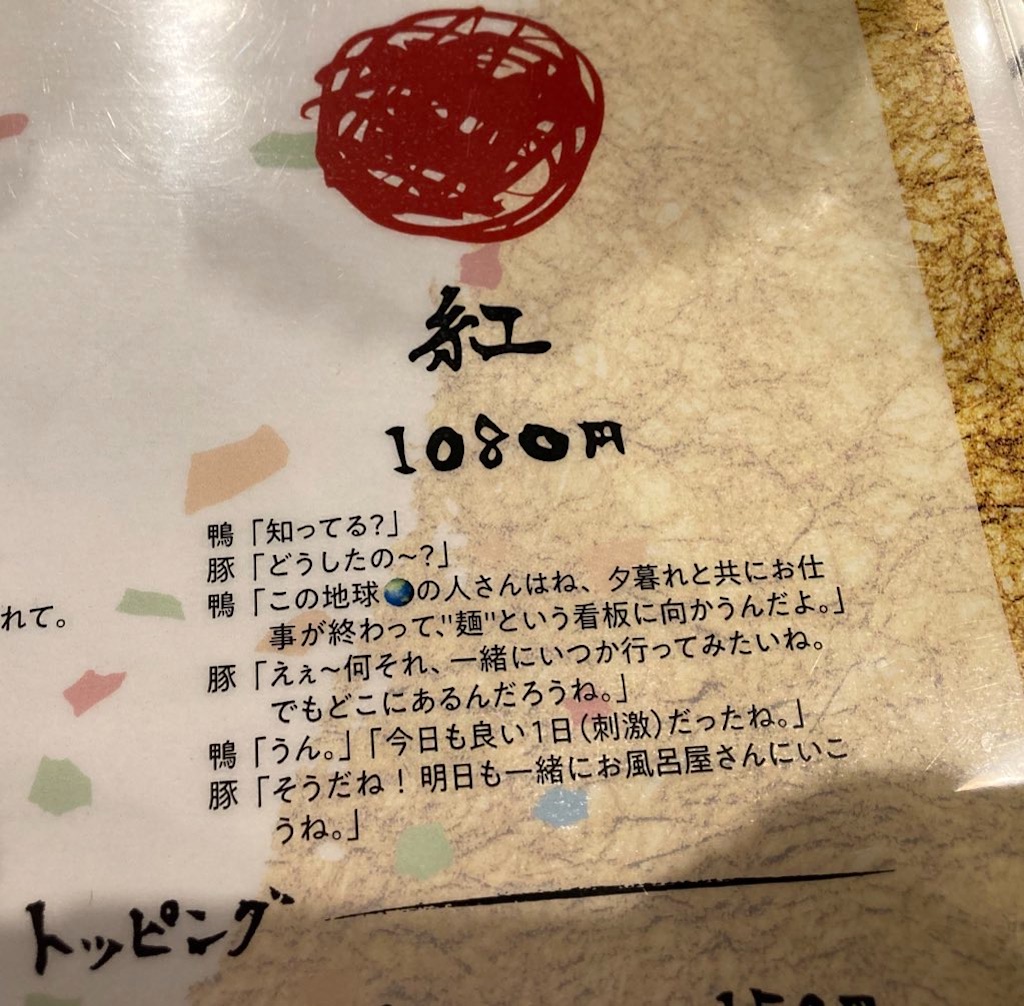 紅
1080円
鴨「知ってる?」
豚「どうしたの〜?」
鴨「この地球🌏の人さんはね、夕暮れと共にお仕
事が終わって、"麺"という看板に向かうんだよ。」
れて。
豚「えぇ〜何それ、一緒にいつか行ってみたいね。
でもどこにあるんだろうね。」
鴨「うん。」「今日も良い1日(刺激)だったね。」
豚「そうだね！明日も一緒にお風呂屋さんにいこ
うね。」
トッピング